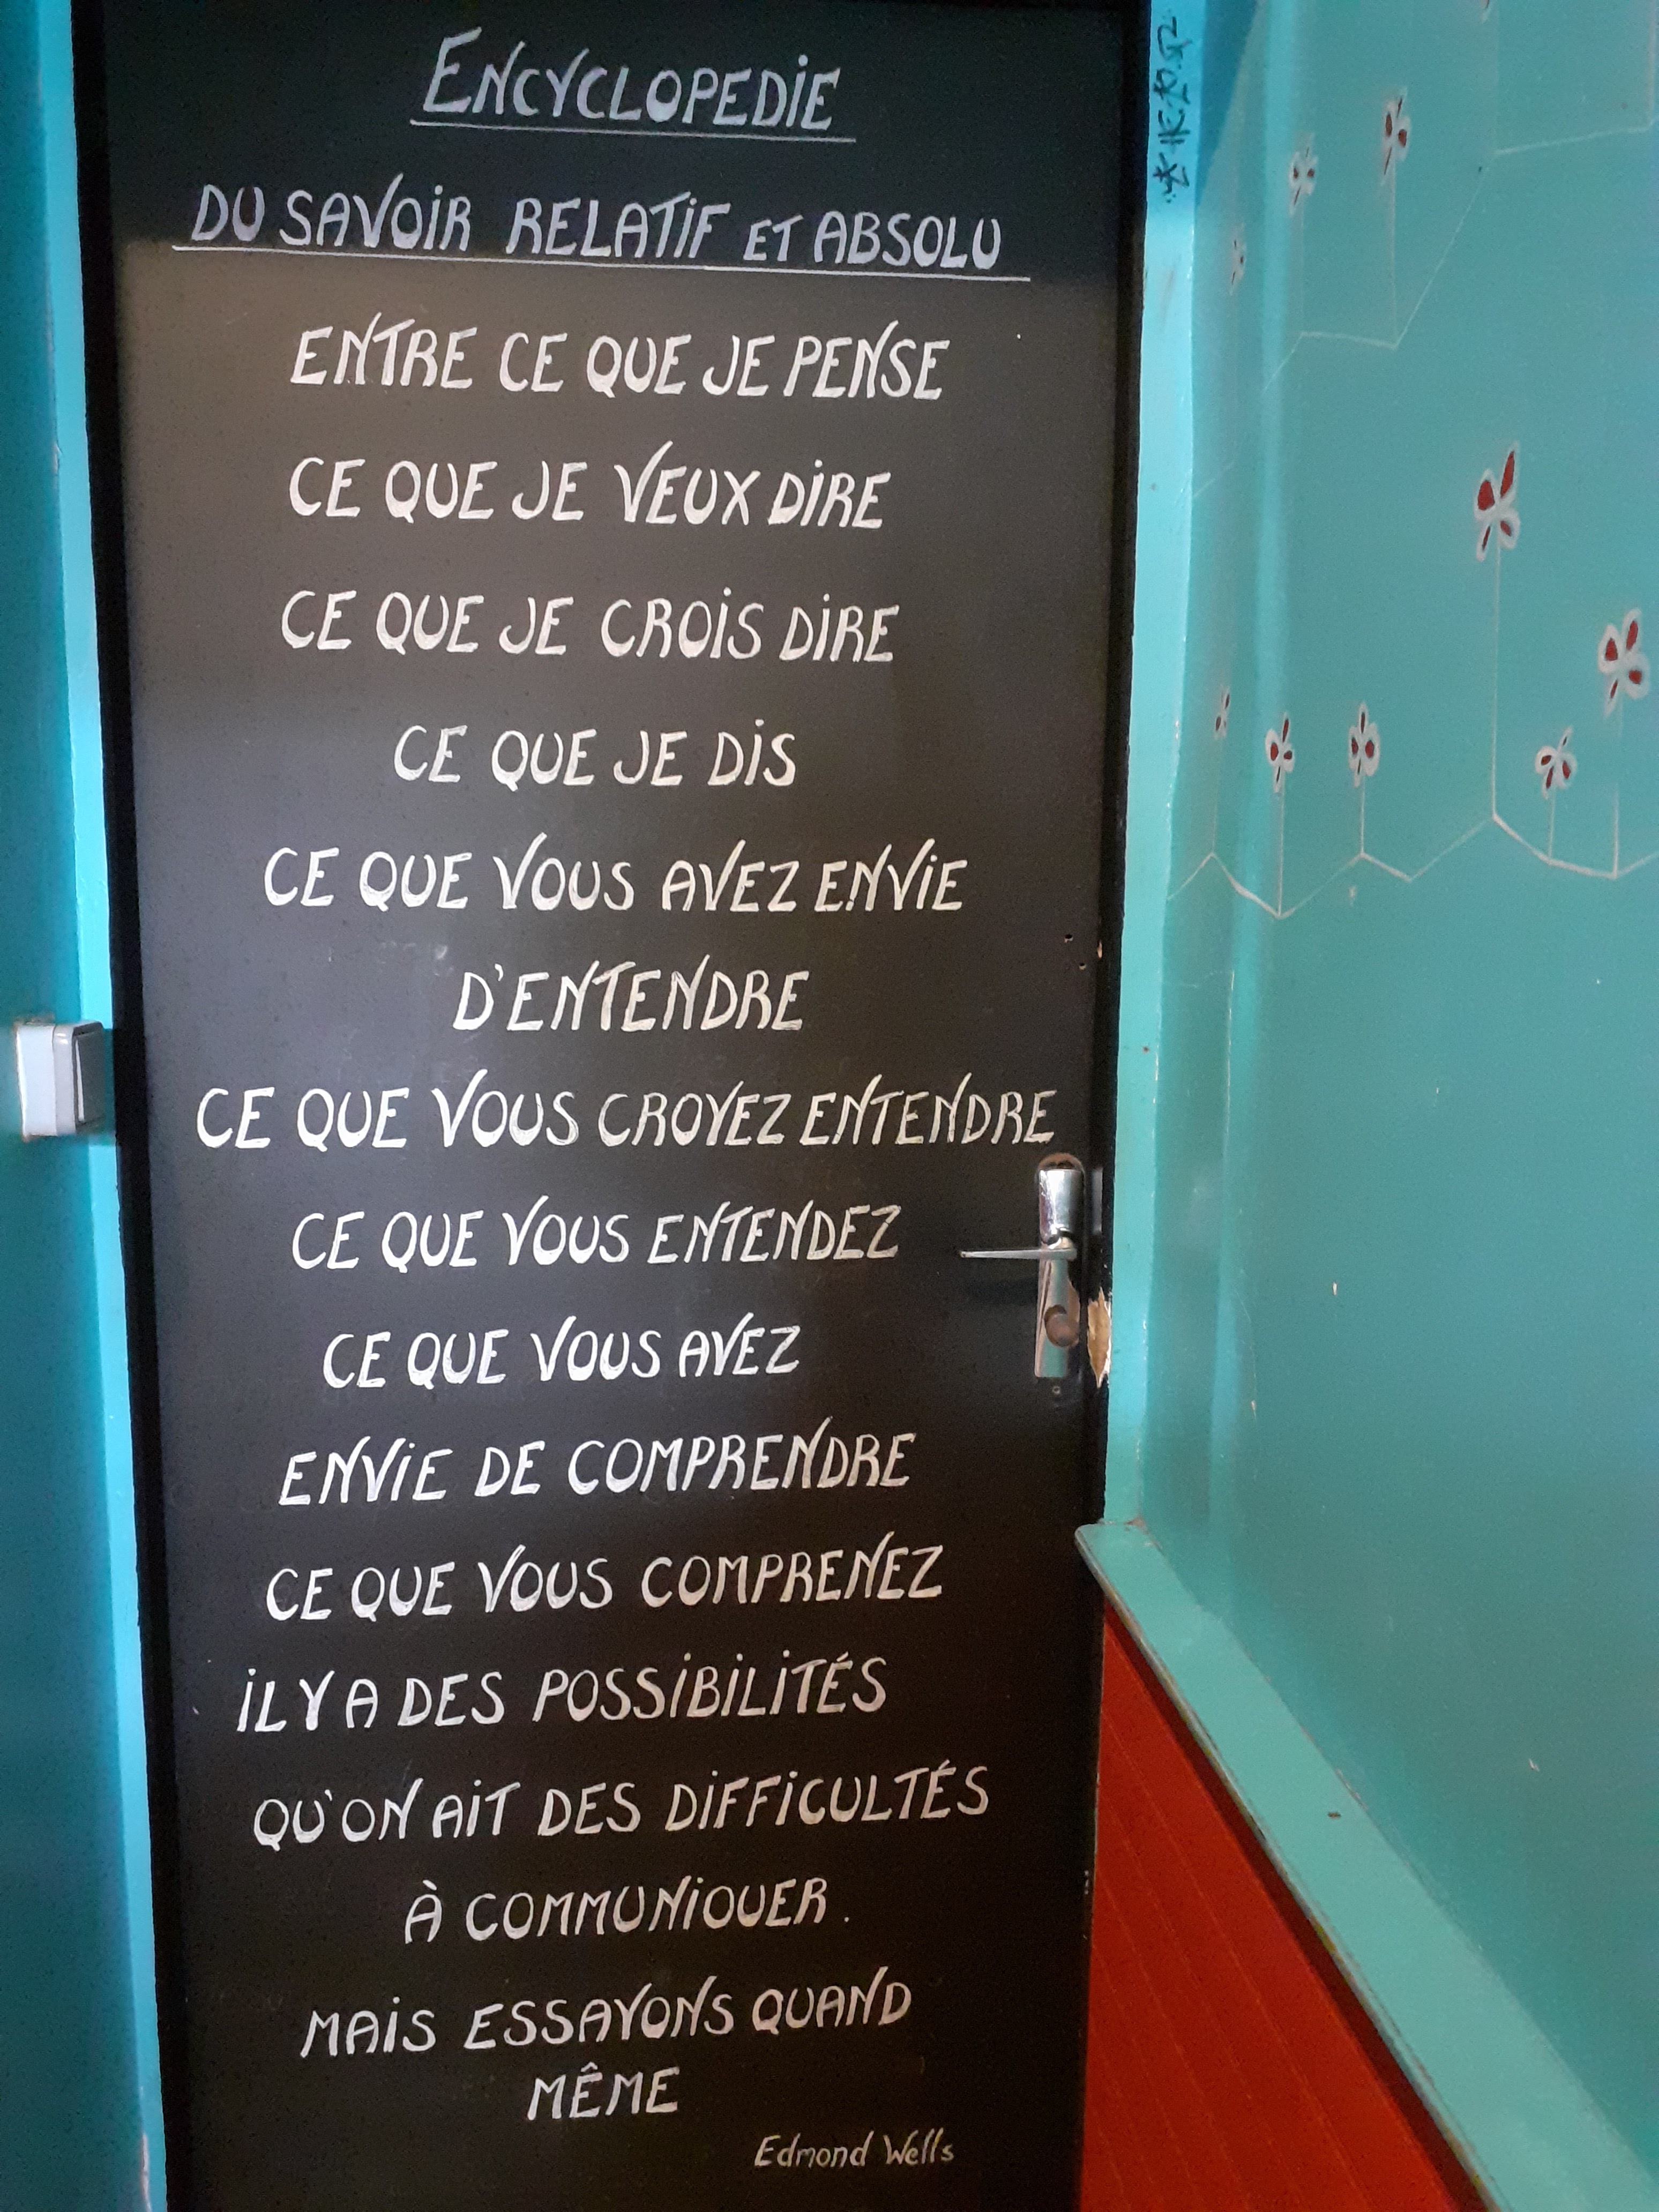 ENCYCLOPEDiE
DU SAVOiR RELATiF ET ABSOLU
ENTRE CE QUE JE PENSE
CE QUE JE VEUX DiRE
CE QUE JE CROiS DiRE
CE QUE JE DiS
CE QUE VOUS AVEZ ENViE
D'ENTENDRE
CE QUE VOUS CROYEZ ENTENDRE
CE QUE VOUS ENTENDEZ
CE QUE VOUS AVEZ
ENViE DE COMPRENDRE
CE QUE VOUS COMPRENEZ
iL Y A DES POSSiBiLiTÉS
QU'ON AiT DES DiFFiCULTÉS
À COMMUNiQUER.
MAiS ESSAYONS QUAND
MÊME
Edmond Wells